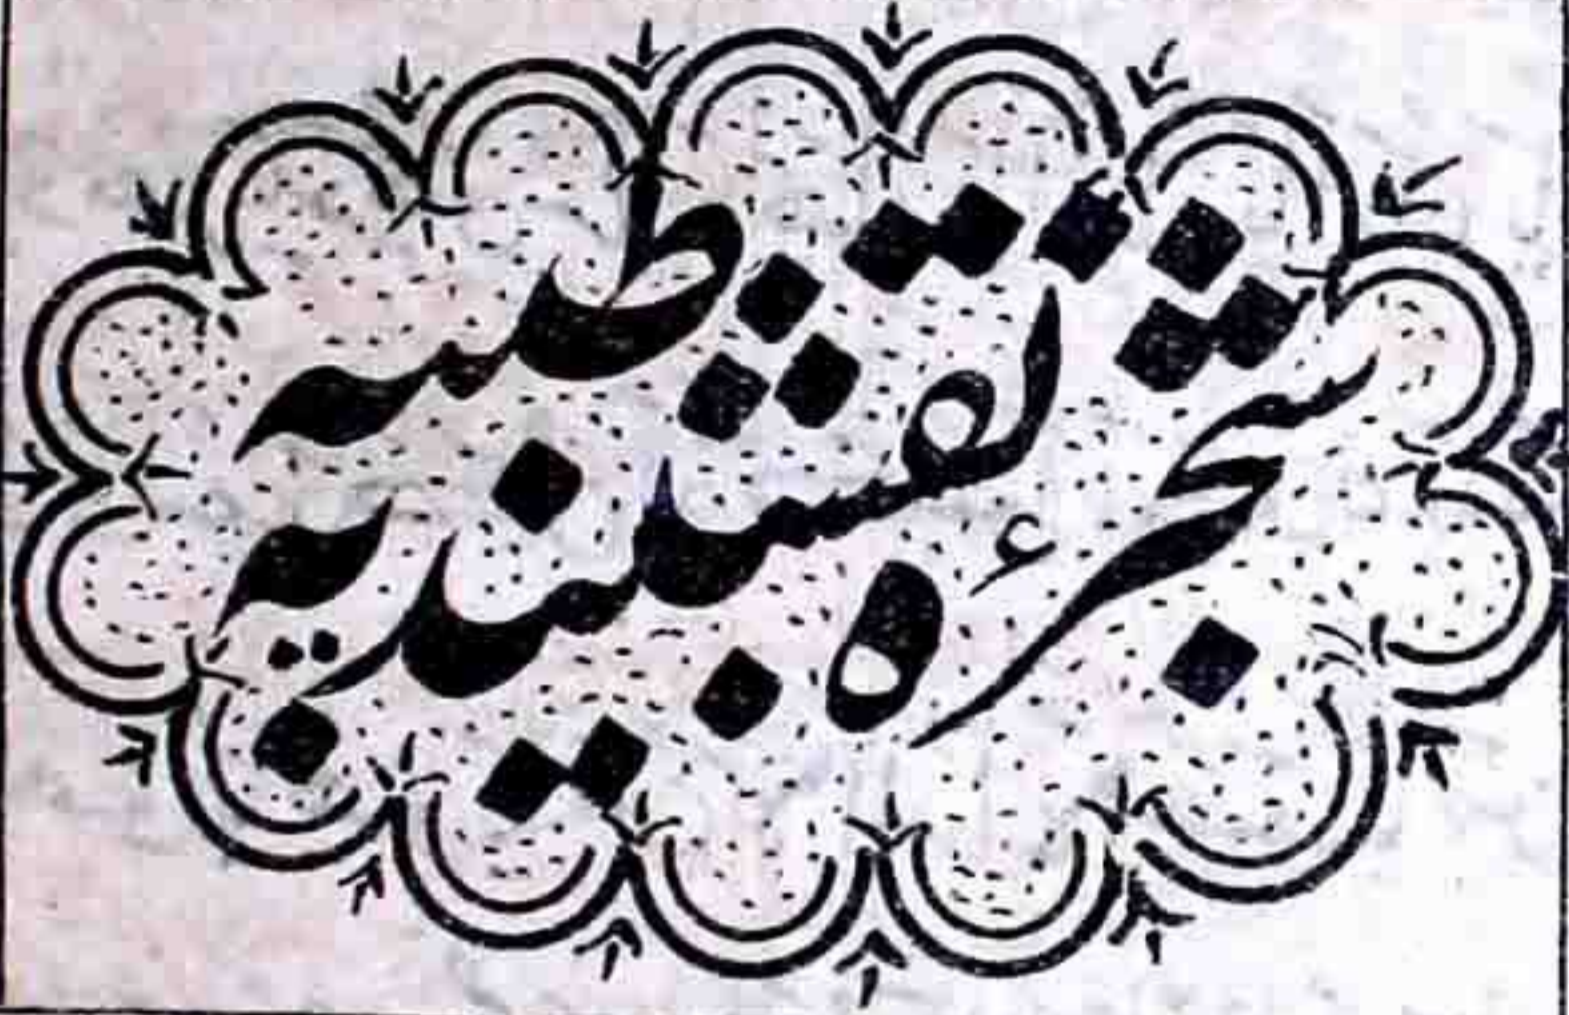 شجرۂ نقشبندیہ طیبہ